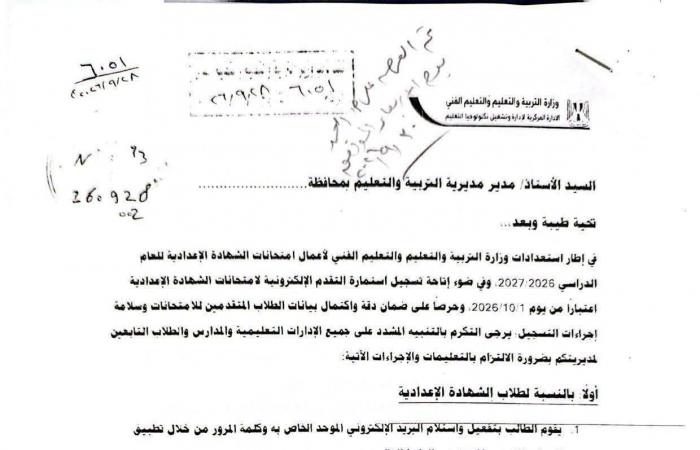 ٦٠٥١
٢٠٢٦/٩/٢٨
٦٠٥١
٢٦/٩/٢٨
وزارة التربية والتعليم والتعليم الفني
الادارة المركزية لإدارة وتشغيل تكنولوجيا التعليم
السيد الأستاذ/ مدير مديرية التربية والتعليم بمحافظة........................
تحية طيبة وبعد...
في إطار استعدادات وزارة التربية والتعليم والتعليم الفني لأعمال امتحانات الشهادة الإعدادية للعام
الدراسي 2027/2026، وفي ضوء إتاحة تسجيل استمارة التقدم الإلكترونية لامتحانات الشهادة الإعدادية
اعتباراً من يوم 2026/10/1، وحرصاً على ضمان دقة واكتمال بيانات الطلاب المتقدمين للامتحانات وسلامة
إجراءات التسجيل؛ يرجى التكرم بالتنبيه المشدد على جميع الإدارات التعليمية والمدارس والطلاب التابعين
لمديريتكم بضرورة الالتزام بالتعليمات والإجراءات الآتية:
أولاً: بالنسبة لطلاب الشهادة الإعدادية
1. يقوم الطالب بتفعيل واستلام البريد الإلكتروني الموحد الخاص به وكلمة المرور من خلال تطبيق